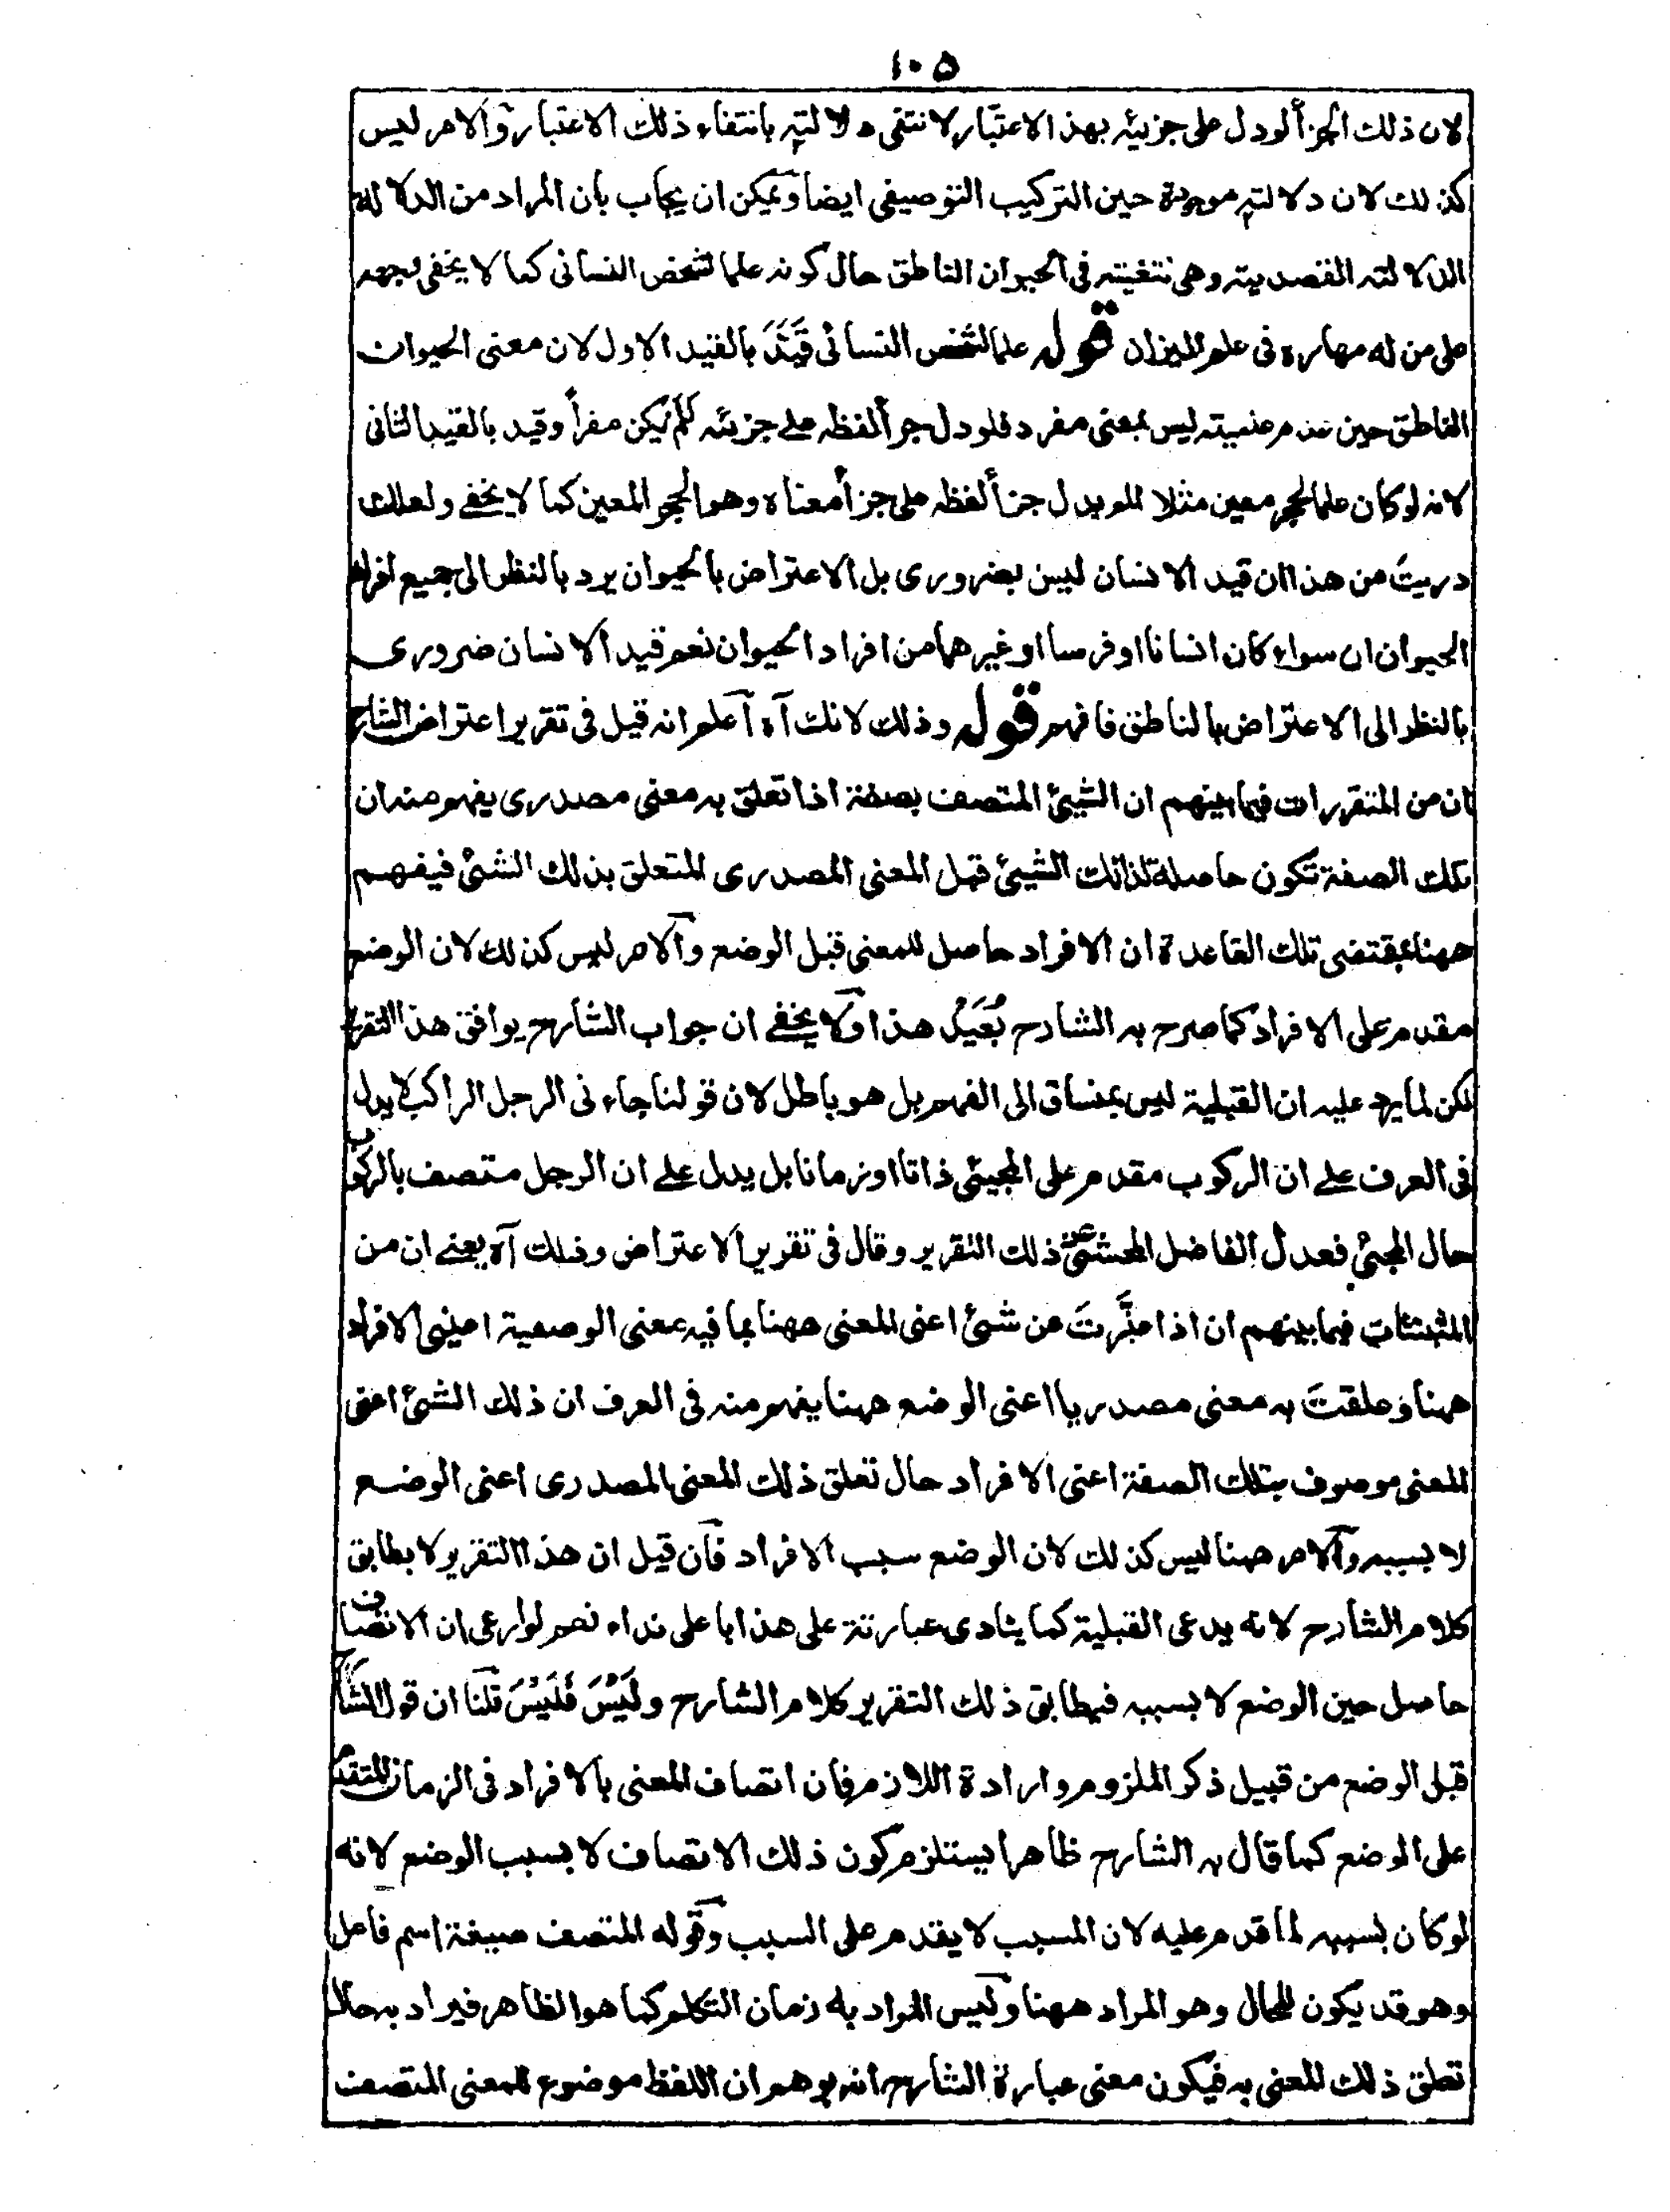 ١٠٥
لان ذلك الجزأ لو دل على جزئيه بهذ الاعتبار لا نتفى دلالته بانتفاء ذلك الاعتبار والامر ليس
كذلك لان دلالته موجودة حين التركيب التوصيفى ايضا ويمكن ان يجاب بان المراد من الدلالة
الدلالته القصديته وهى منتفيته فى الحيوان الناطق حال كونه علما لشخص النسانى كما لا يخفى وجهه
على من له مهاره فى علم الميزان قوله علما لشخص النسانى قيد بالقيد الاول لان معنى الحيوان
الناطق حين عدم علميته ليس بمعنى مفرد فلو دل جزأ لفظه على جزئه لم يكن مفرأ وقيد بالقيد الثانى
لانه لو كان علما لحجر معين مثلا لم يدل جزأ لفظه على جزأ معناه وهو الحجر المعين كما لا يخفے ولعلك
دريت من هذا ان قيد الانسان ليس بضرورى بل الاعتراض بالحيوان يرد بالنظر الى جميع افراد
الحيوان ان سواء كان انسانا او فرسا او غيرهما من افراد الحيوان نعم قيد الانسان ضرورى
بالنظر الى الاعتراض بالناطق فافهم قوله وذلك لانك آه اعلم انه قيل فى تقرير اعتراض الشارح
ان من المتقررات فيما بينهم ان الشيئ المتصف بصفة اذا تعلق به معنى مصدرى يفهم منه ان
تلك الصفة تكون حاصلة لذلك الشيئ قبل المعنى المصدرى المتعلق بذلك الشئ فيفهم
ههنا بمقتضى تلك القاعدة ان الافراد حاصل للمعنى قبل الوضع والامر ليس كذلك لان الوضع
مقدم على الافراد كما صرح به الشارح بعيد هذا ولا يخفے ان جواب الشارح يوافق هذا التقرير
لكن لما يرد عليه ان القبلية ليس بمنساق الى الفهم بل هو باطل لان قولنا جاءنى الرجل الراكب لا يدل
فى العرف علے ان الركوب مقدم على المجيئى ذاتا او زمانا بل يدل علے ان الرجل متصف بالركوب
حال المجئ فعدل الفاضل المحشى عن ذلك التقرير وقال فى تقرير الاعتراض وذلك آه يعنے ان من
المثبتات فيما بينهم ان اذا عبرت عن شئ اعنى المعنى ههنا بما فيه معنى الوصفية اعنى الافراد
ههنا وعلقت به معنى مصدريا اعنى الوضع ههنا يفهم منه فى العرف ان ذلك الشئ اعنى
المعنى موصوف بتلك الصفة اعنى الافراد حال تعلق ذلك المعنى المصدرى اعنى الوضع
لا بسببه والامر ههنا ليس كذلك لان الوضع سبب الافراد فان قيل ان هذا التقرير لا يطابق
كلام الشارح لانه يدعى القبلية كما ينادى عبارتة على هذا باعلى نداء نعم لو ادعى ان الاتصاف
حاصل حين الوضع لا بسببه فيطابق ذلك التقرير كلام الشارح وليس فليس قلنا ان قول الشارح
قبل الوضع من قبيل ذكر الملزوم وارادة اللازم فان اتصاف المعنى بالافراد فى الزمان المتقدم
على الوضع كما قال به الشارح ظاهرا يستلزم كون ذلك الاتصاف لا بسبب الوضع لانه
لو كان بسببه لما قدم عليه لان المسبب لا يقدم على السبب وقوله المتصف صيغة اسم فاعل
وهو قد يكون للحال وهو المراد ههنا وليس المراد به زمان التكلم كما هو الظاهر فيراد به حال
تعلق ذلك المعنى به فيكون معنى عبارة الشارح انه يوهم ان اللفظ موضوع للمعنى المتصف